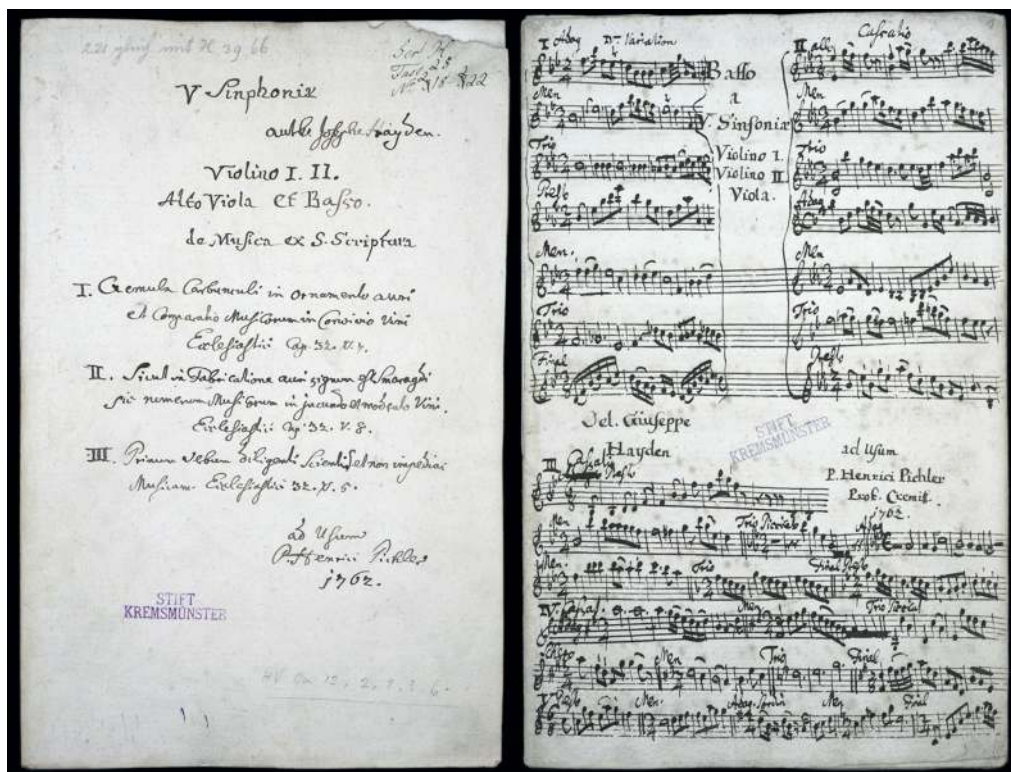 221 gleich mit H 39. 66
V Sinphoniæ
Hayden.
Violino I. II.
Alto Viola Et Basso.
de Musica ex S. Scriptura
I. Gemula Carbunculi in ornamento auri
et Comparatio Musicorum in Convivio Vini
Ecclesiastici Cap. 32. V. 7.
II. Sicut in Fabricatione auri signum est smaragdi
sic numerus Musicorum in jucundo et moderato Vino.
Ecclesiastici Cap. 32. V. 8.
III. Verbum Diligenti Scientia et non impedias
Musicam. Ecclesiastici 32. V. 5.
ad Usum
P. Henrici Pichler
1762.
STIFT
KREMSMÜNSTER
I Adag
Variation
Men
Trio
Presto
Men.
Trio
Final
Basso
a
V. Sinfoniæ
Violino I.
Violino II
Viola.
II All
Cassatio
Men
Trio
Adag
Men
Trio
Presto
Del. Giuseppe
Hayden
STIFT
KREMSMÜNSTER
ad Usum
P. Henrici Pichler
Prof. Cremif.
1762.
III Presto
Men Trio Adag
Men. Trio Final Presto
IV. Cassa. Men Trio
Men Trio Final
V Presto Men. Adag. Men Final